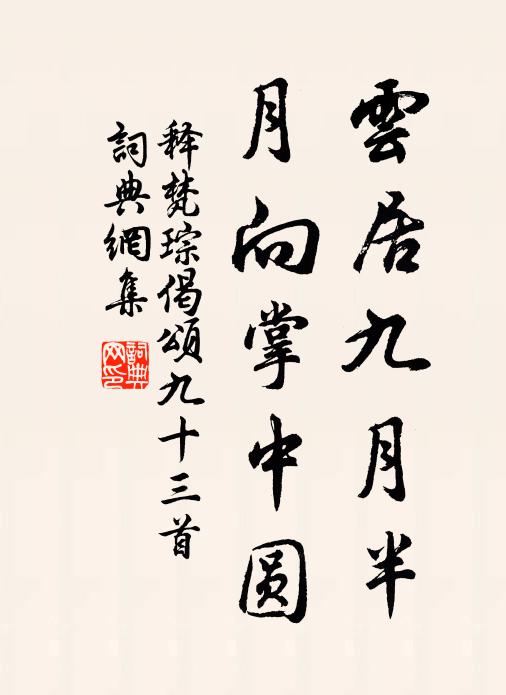 雲居九月半
月向掌中圆
释梵琮偈頌九十三首
詞典網集
詞典網印